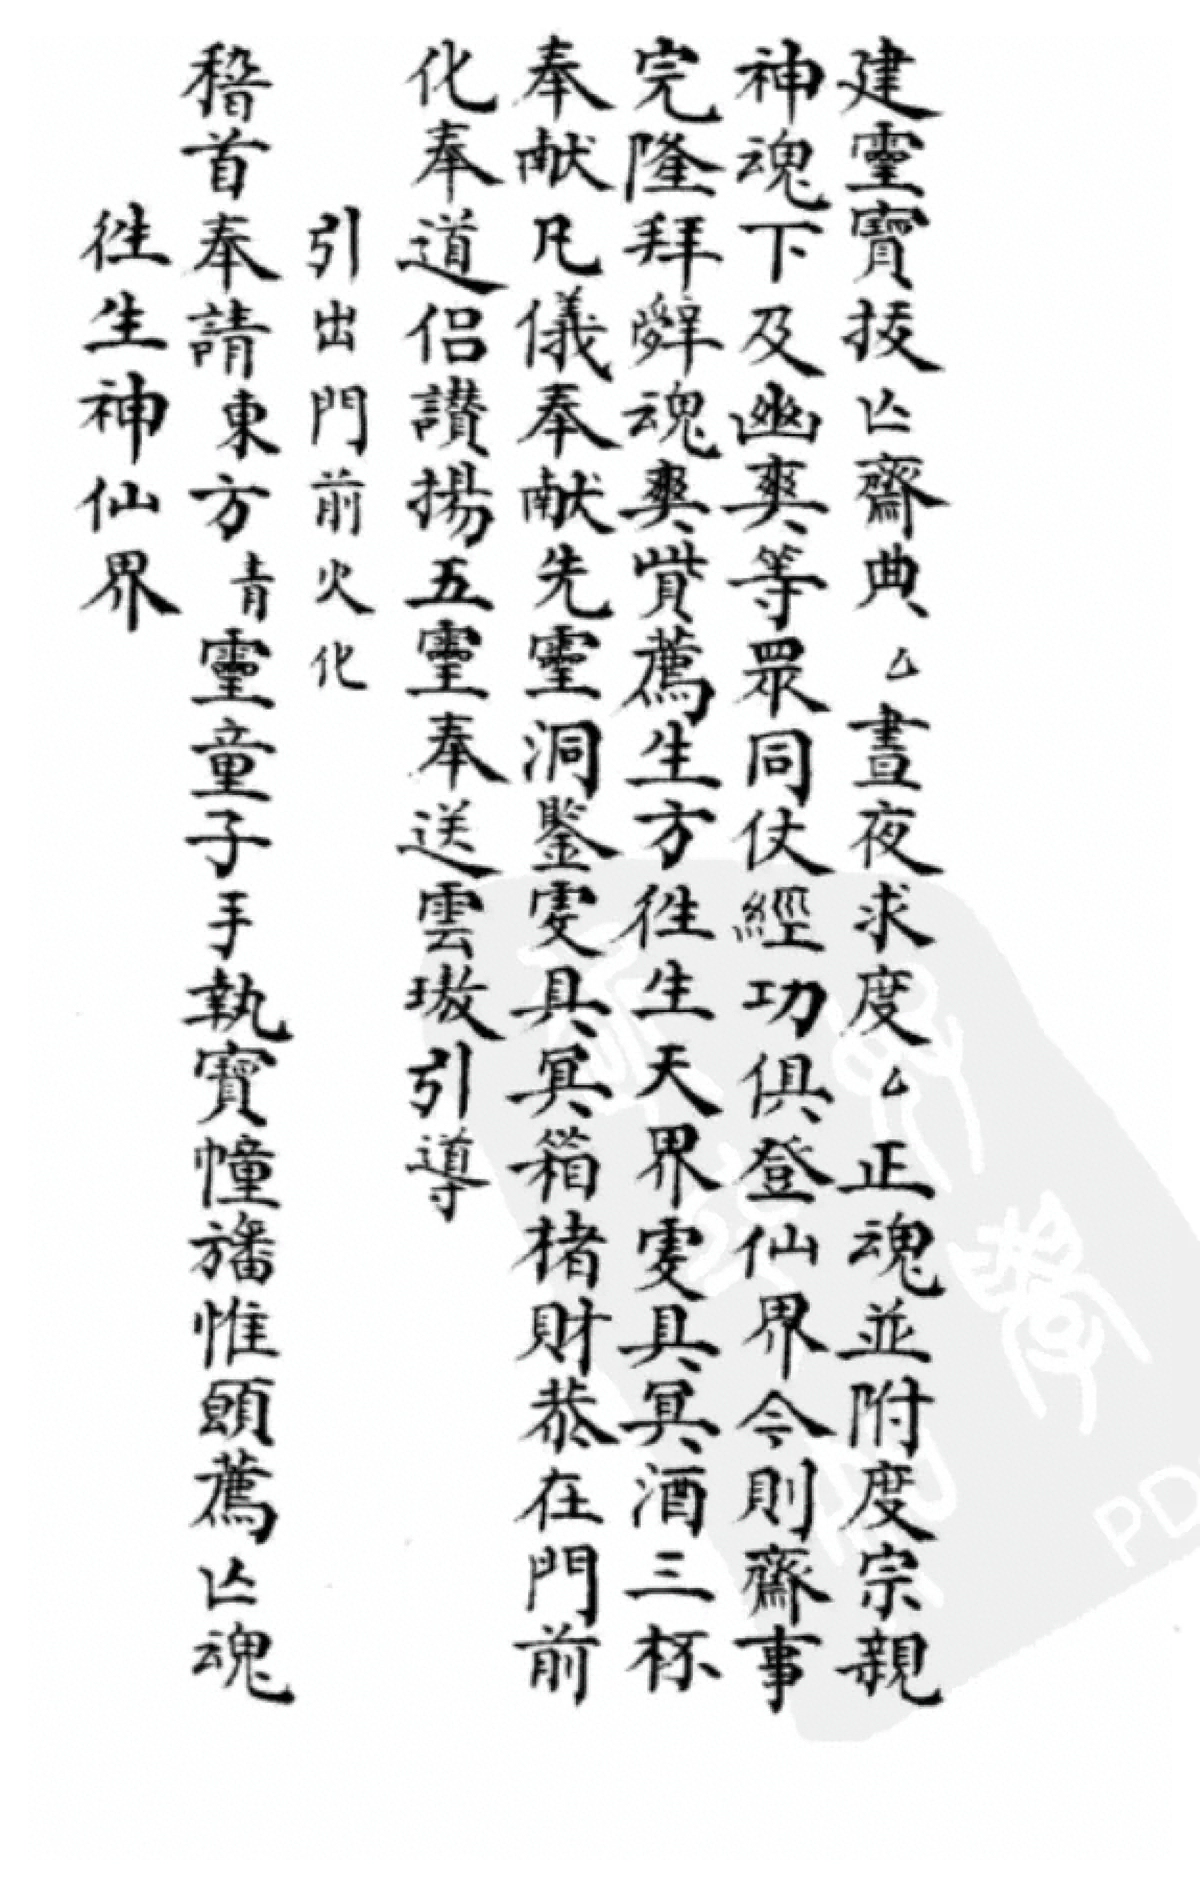 建靈寶拔亾齋典厶晝夜求度厶正魂並附度宗親
神魂下及幽爽等眾同仗經功俱登仙界今則齋事
完隆拜辭魂爽賫薦生方徃生天界虔具冥酒三杯
奉献凡儀奉献先靈洞鑒虔具冥箱楮財恭在門前
化奉道侶讃揚五靈奉送雲璈引導
引出門前火化
稽首奉請東方青靈童子手執寶幢旛惟願薦亾魂
徃生神仙界